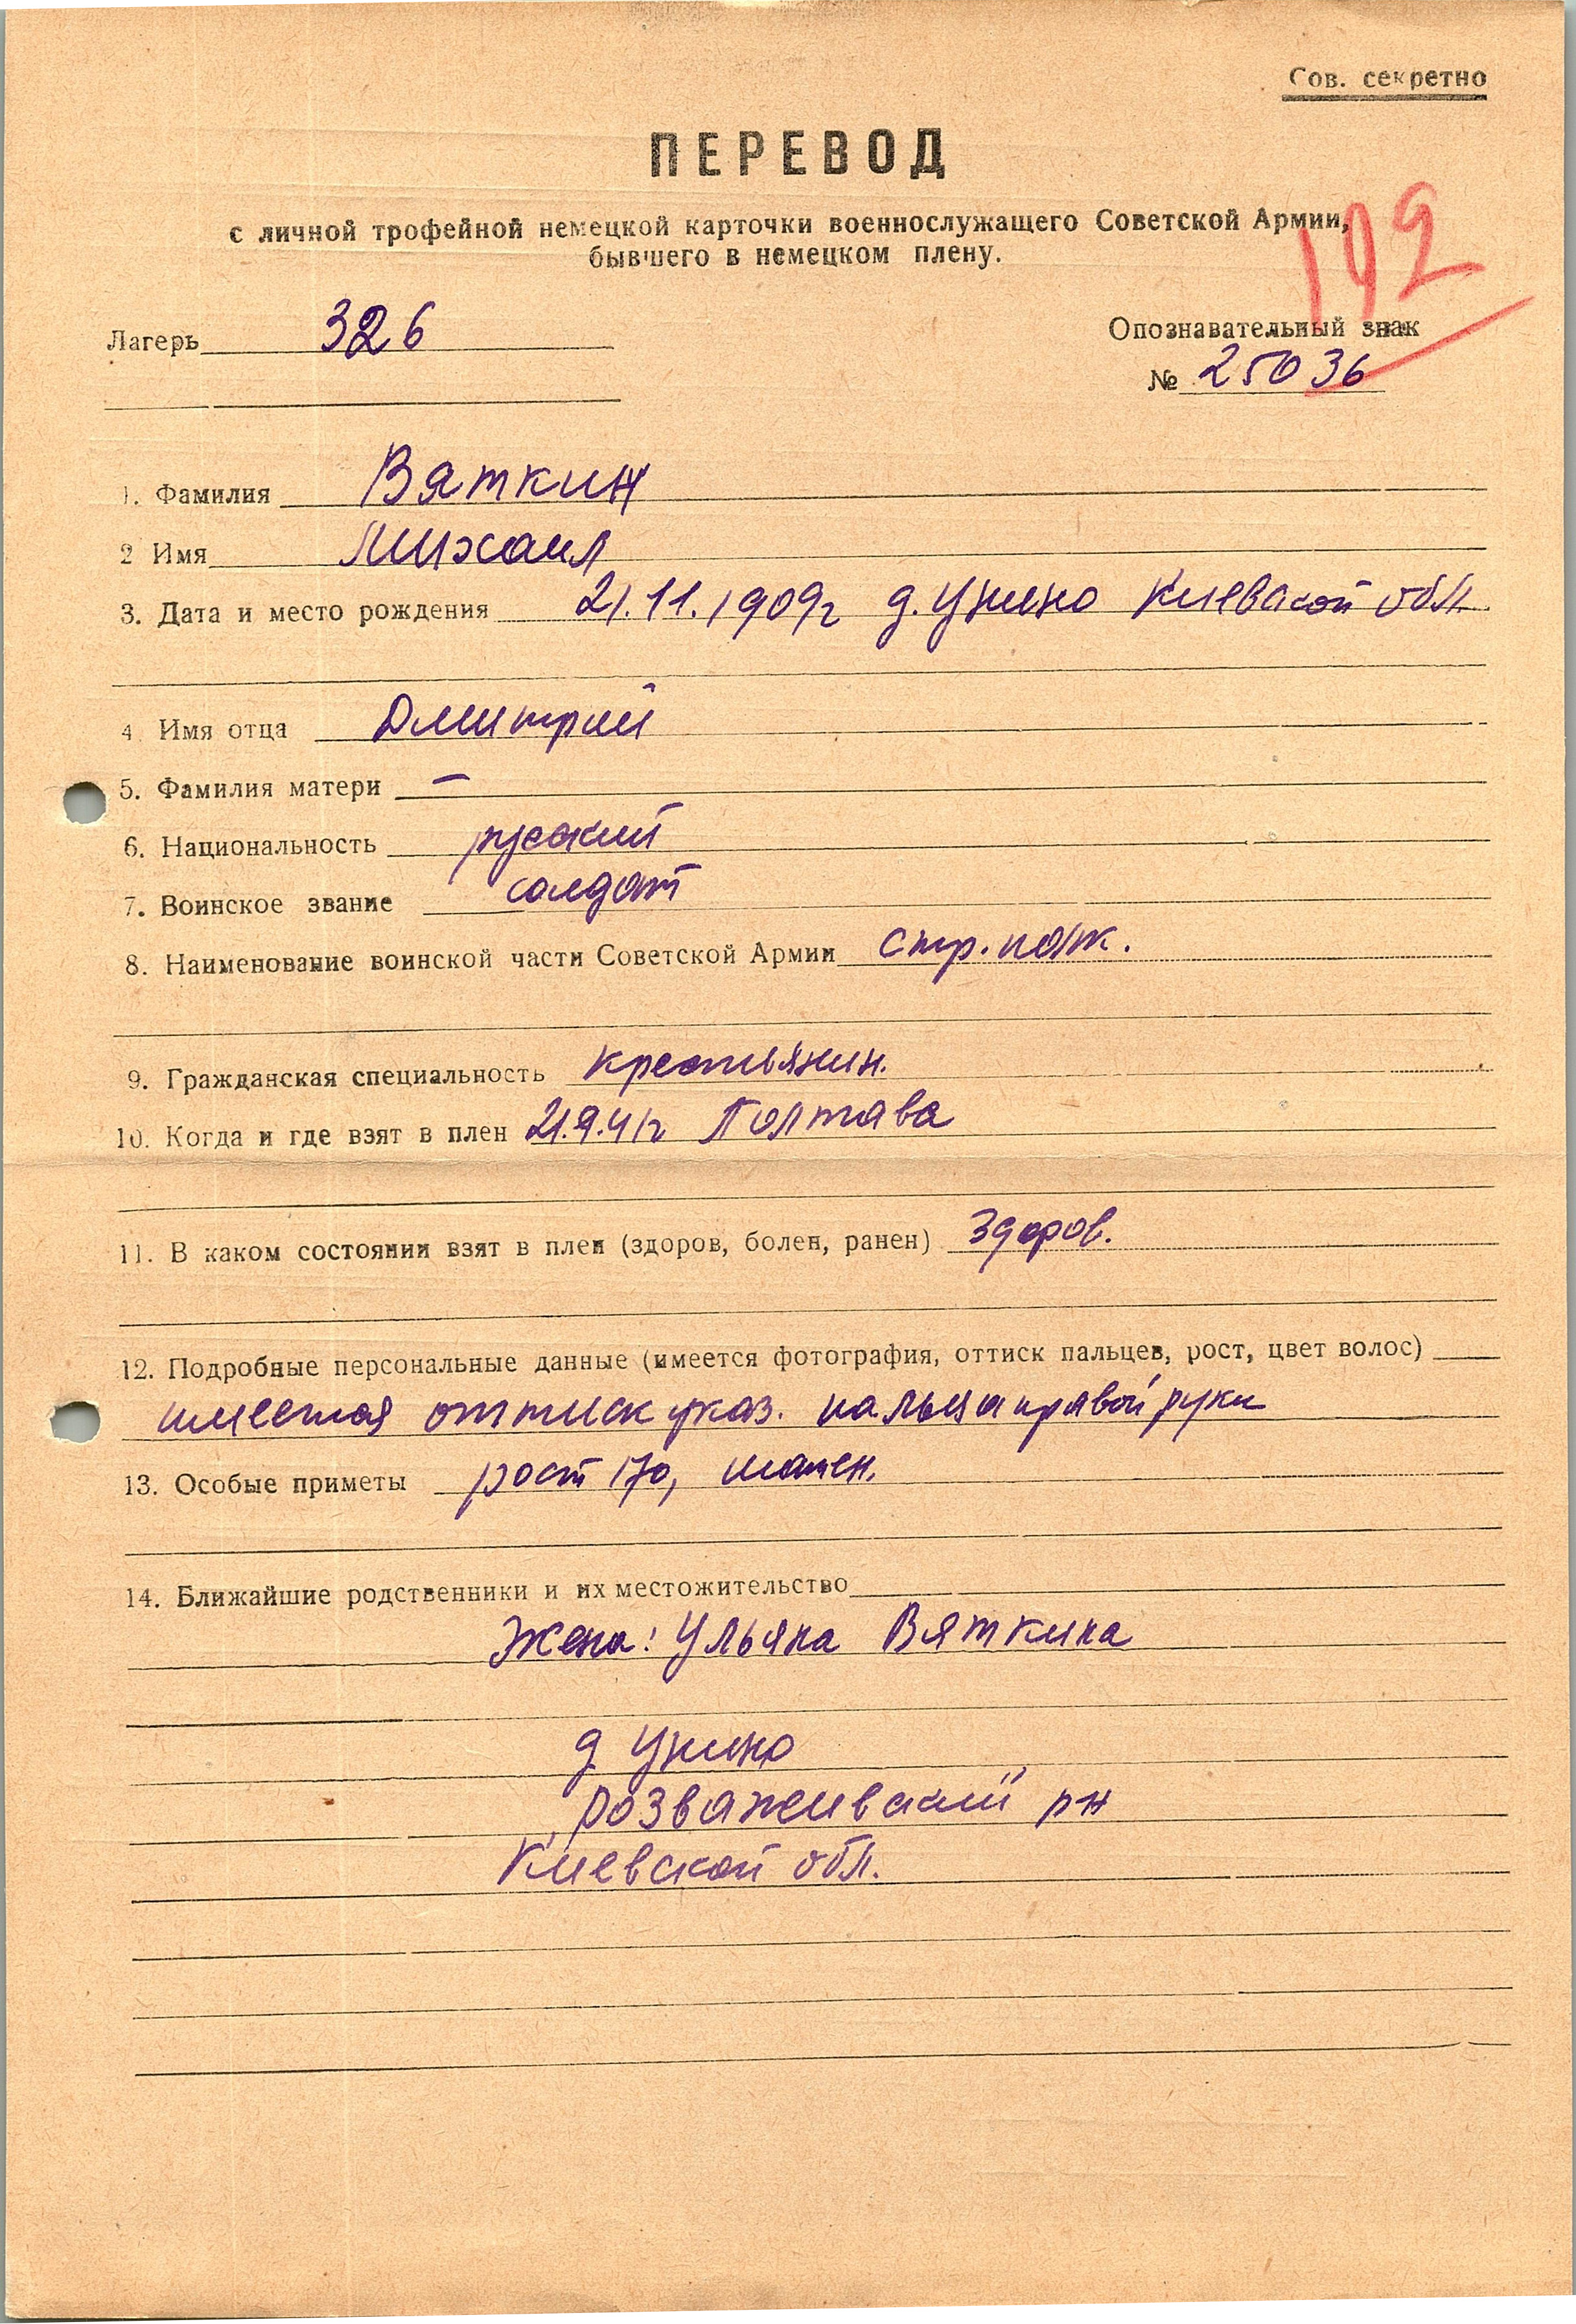 Сов. секретно
ПЕРЕВОД
с личной трофейной немецкой карточки военнослужащего Советской Армии,
бывшего в немецком плену.
192
Лагерь 326
Опознавательный знак
№ 25036
1. Фамилия Вяткин
2 Имя Михаил
3. Дата и место рождения 21.11.1909г д. Унино Киевской обл.
4 Имя отца Дмитрий
5. Фамилия матери —
6. Национальность русский
7. Воинское звание солдат
8. Наименование воинской части Советской Армии стр. полк.
9. Гражданская специальность крестьянин.
10. Когда и где взят в плен 21.9.41г Полтава
11. В каком состоянии взят в плен (здоров, болен, ранен) здоров.
12. Подробные персональные данные (имеется фотография, оттиск пальцев, рост, цвет волос)
имеется оттиск указ. пальца правой руки
13. Особые приметы рост 170, шатен.
14. Ближайшие родственники и их местожительство
Жена: Ульяна Вяткина
д Унино
Розважевский рн
Киевской обл.